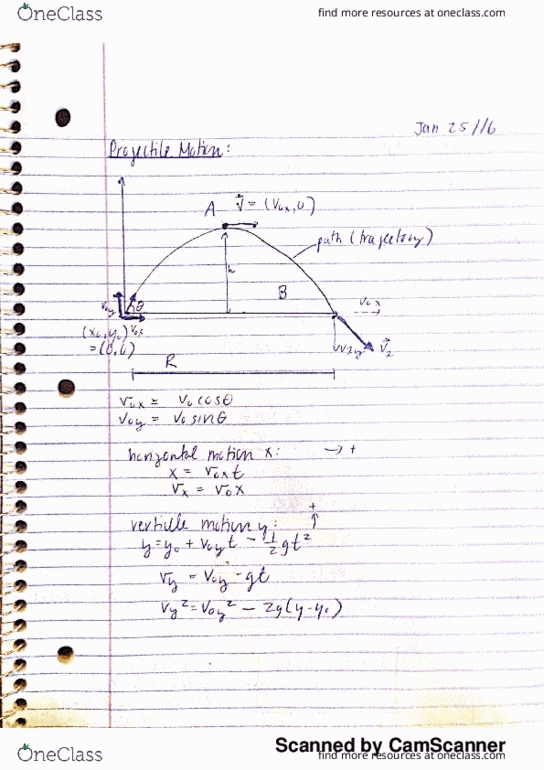 OneClass
find more resources at oneclass.com
Jan 25/16
Projectile Motion:
A v⃗ = (v₀ₓ, 0)
path (trajectory)
h
B
v₀y θ
v₀ₓ
v₀ₓ
(x₀, y₀)
= (0,0)
v₂y v⃗₂
R
v₀ₓ = v₀ cosθ
v₀y = v₀ sinθ
horizontal motion x: → +
x = v₀ₓt
vₓ = v₀x
+
verticle motion y: ↑
y = y₀ + v₀yt - ½gt²
vy = v₀y - gt
vy² = v₀y² - 2g(y-y₀)
Scanned by CamScanner
OneClass
find more resources at oneclass.com